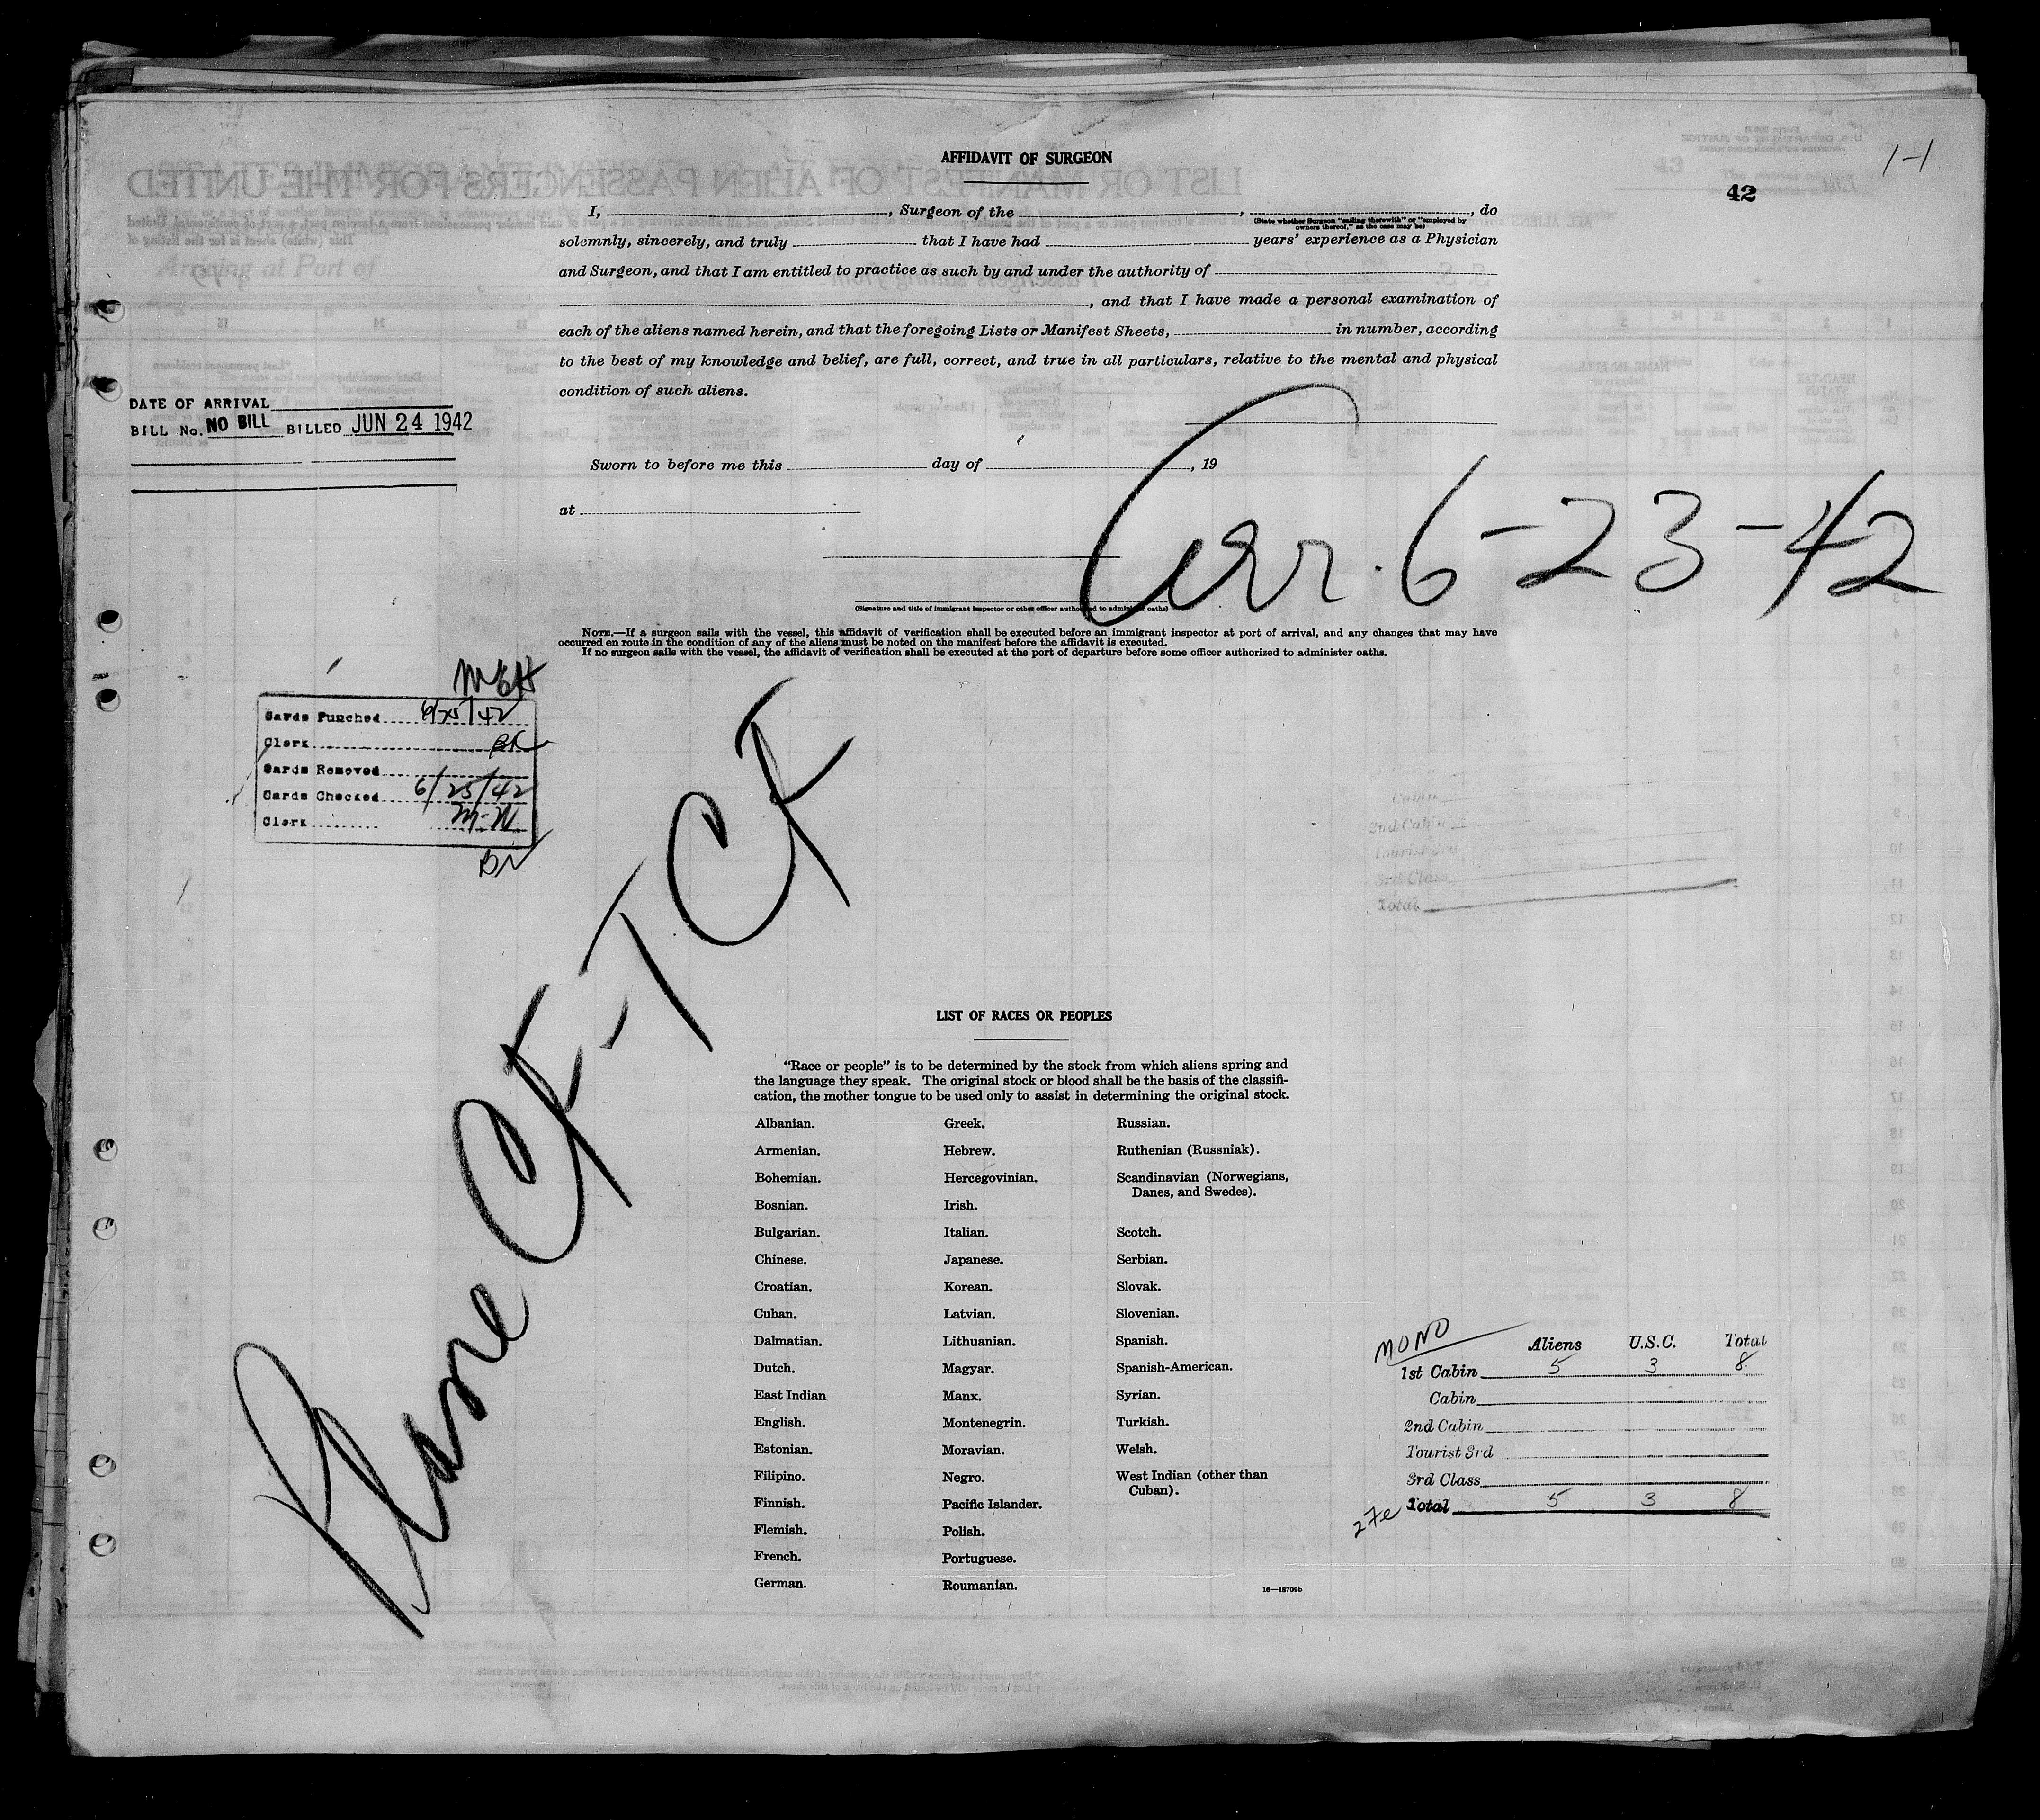 AFFIDAVIT OF SURGEON
1-1
42
I, , Surgeon of the , , do
(State whether Surgeon "sailing therewith" or "employed by owners thereof," as the case may be)
solemnly, sincerely, and truly that I have had years' experience as a Physician
and Surgeon, and that I am entitled to practice as such by and under the authority of
, and that I have made a personal examination of
each of the aliens named herein, and that the foregoing Lists or Manifest Sheets, in number, according
to the best of my knowledge and belief, are full, correct, and true in all particulars, relative to the mental and physical
condition of such aliens.
DATE OF ARRIVAL
BILL No. NO BILL BILLED JUN 24 1942
Sworn to before me this day of , 19
at
Arr. 6-23-42
(Signature and title of immigrant inspector or other officer authorized to administer oaths)
NOTE.—If a surgeon sails with the vessel, this affidavit of verification shall be executed before an immigrant inspector at port of arrival, and any changes that may have
occurred en route in the condition of any of the aliens must be noted on the manifest before the affidavit is executed.
If no surgeon sails with the vessel, the affidavit of verification shall be executed at the port of departure before some officer authorized to administer oaths.
Cards Punched 6/25/42
Clerk
Cards Removed
Cards Checked 6/25/42
Clerk M.M
Plane CF-TCF
2nd Cabin
Tourist 3rd
3rd Class
Total
LIST OF RACES OR PEOPLES
"Race or people" is to be determined by the stock from which aliens spring and
the language they speak. The original stock or blood shall be the basis of the classifi-
cation, the mother tongue to be used only to assist in determining the original stock.
Albanian.
Armenian.
Bohemian.
Bosnian.
Bulgarian.
Chinese.
Croatian.
Cuban.
Dalmatian.
Dutch.
East Indian
English.
Estonian.
Filipino.
Finnish.
Flemish.
French.
German.
Greek.
Hebrew.
Hercegovinian.
Irish.
Italian.
Japanese.
Korean.
Latvian.
Lithuanian.
Magyar.
Manx.
Montenegrin.
Moravian.
Negro.
Pacific Islander.
Polish.
Portuguese.
Roumanian.
Russian.
Ruthenian (Russniak).
Scandinavian (Norwegians,
Danes, and Swedes).
Scotch.
Serbian.
Slovak.
Slovenian.
Spanish.
Spanish-American.
Syrian.
Turkish.
Welsh.
West Indian (other than
Cuban).
16—18709b
MONO
Aliens U.S.C. Total
1st Cabin 5 3 8
Cabin
2nd Cabin
Tourist 3rd
3rd Class
Total 5 3 8